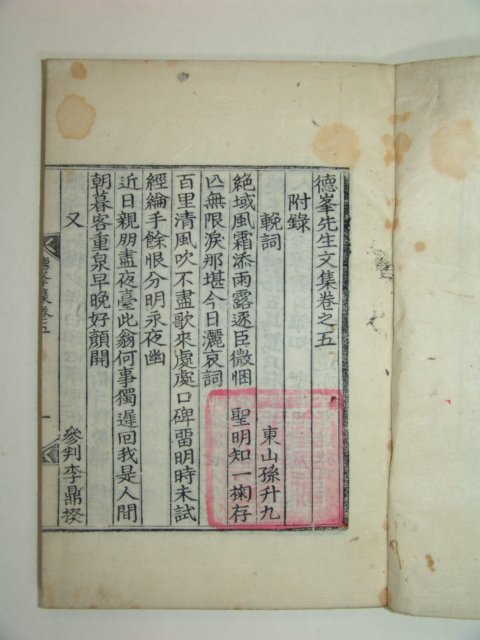 德峯先生文集卷之五
附錄
輓詞
東山孫升九
絶域風霜添雨露逐臣微悃 聖明知一掬存
亾無限淚那堪今日灑哀詞
百里清風吹不盡歌來處處口碑留明時未試
經綸手餘恨分明永夜幽
近日親朋盡夜臺此翁何事獨遲回我是人間
朝暮客重泉早晚好顔開
又
參判李鼎揆
集卷五
一